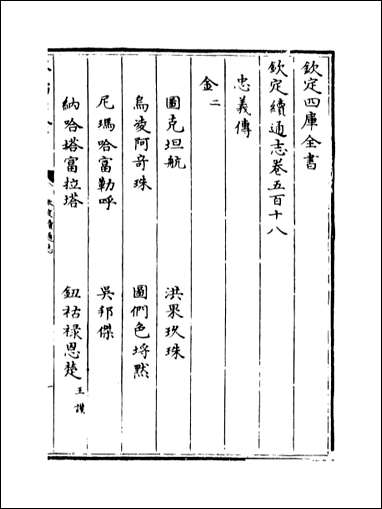 欽定四庫全書
欽定續通志卷五百十八
忠義傳
金二
圖克坦航 洪果玖珠
烏凌阿奇珠 圖們色埒默
尼瑪哈富勒呼 吳邦傑
納哈塔富拉塔 鈕祜祿恩楚 王謨
欽定續通志